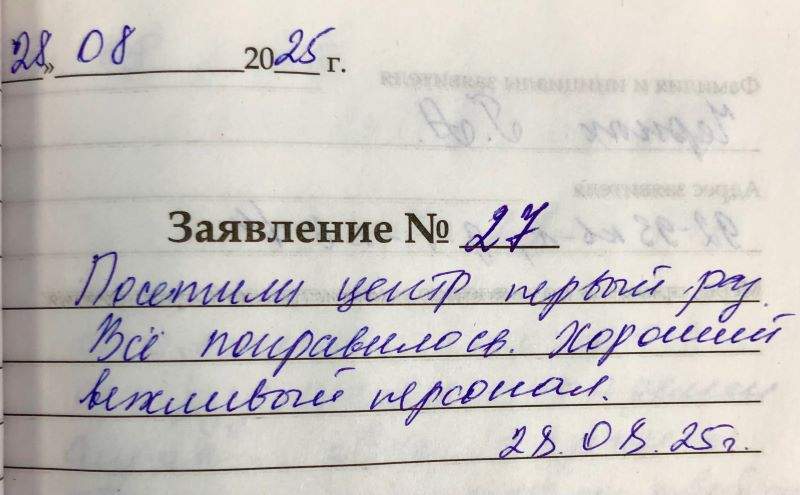 28» 08 2025 г.
Заявление № 27
Посетили центр первый раз.
Всё понравилось. Хороший
вежливый персонал.
28.08.25г.